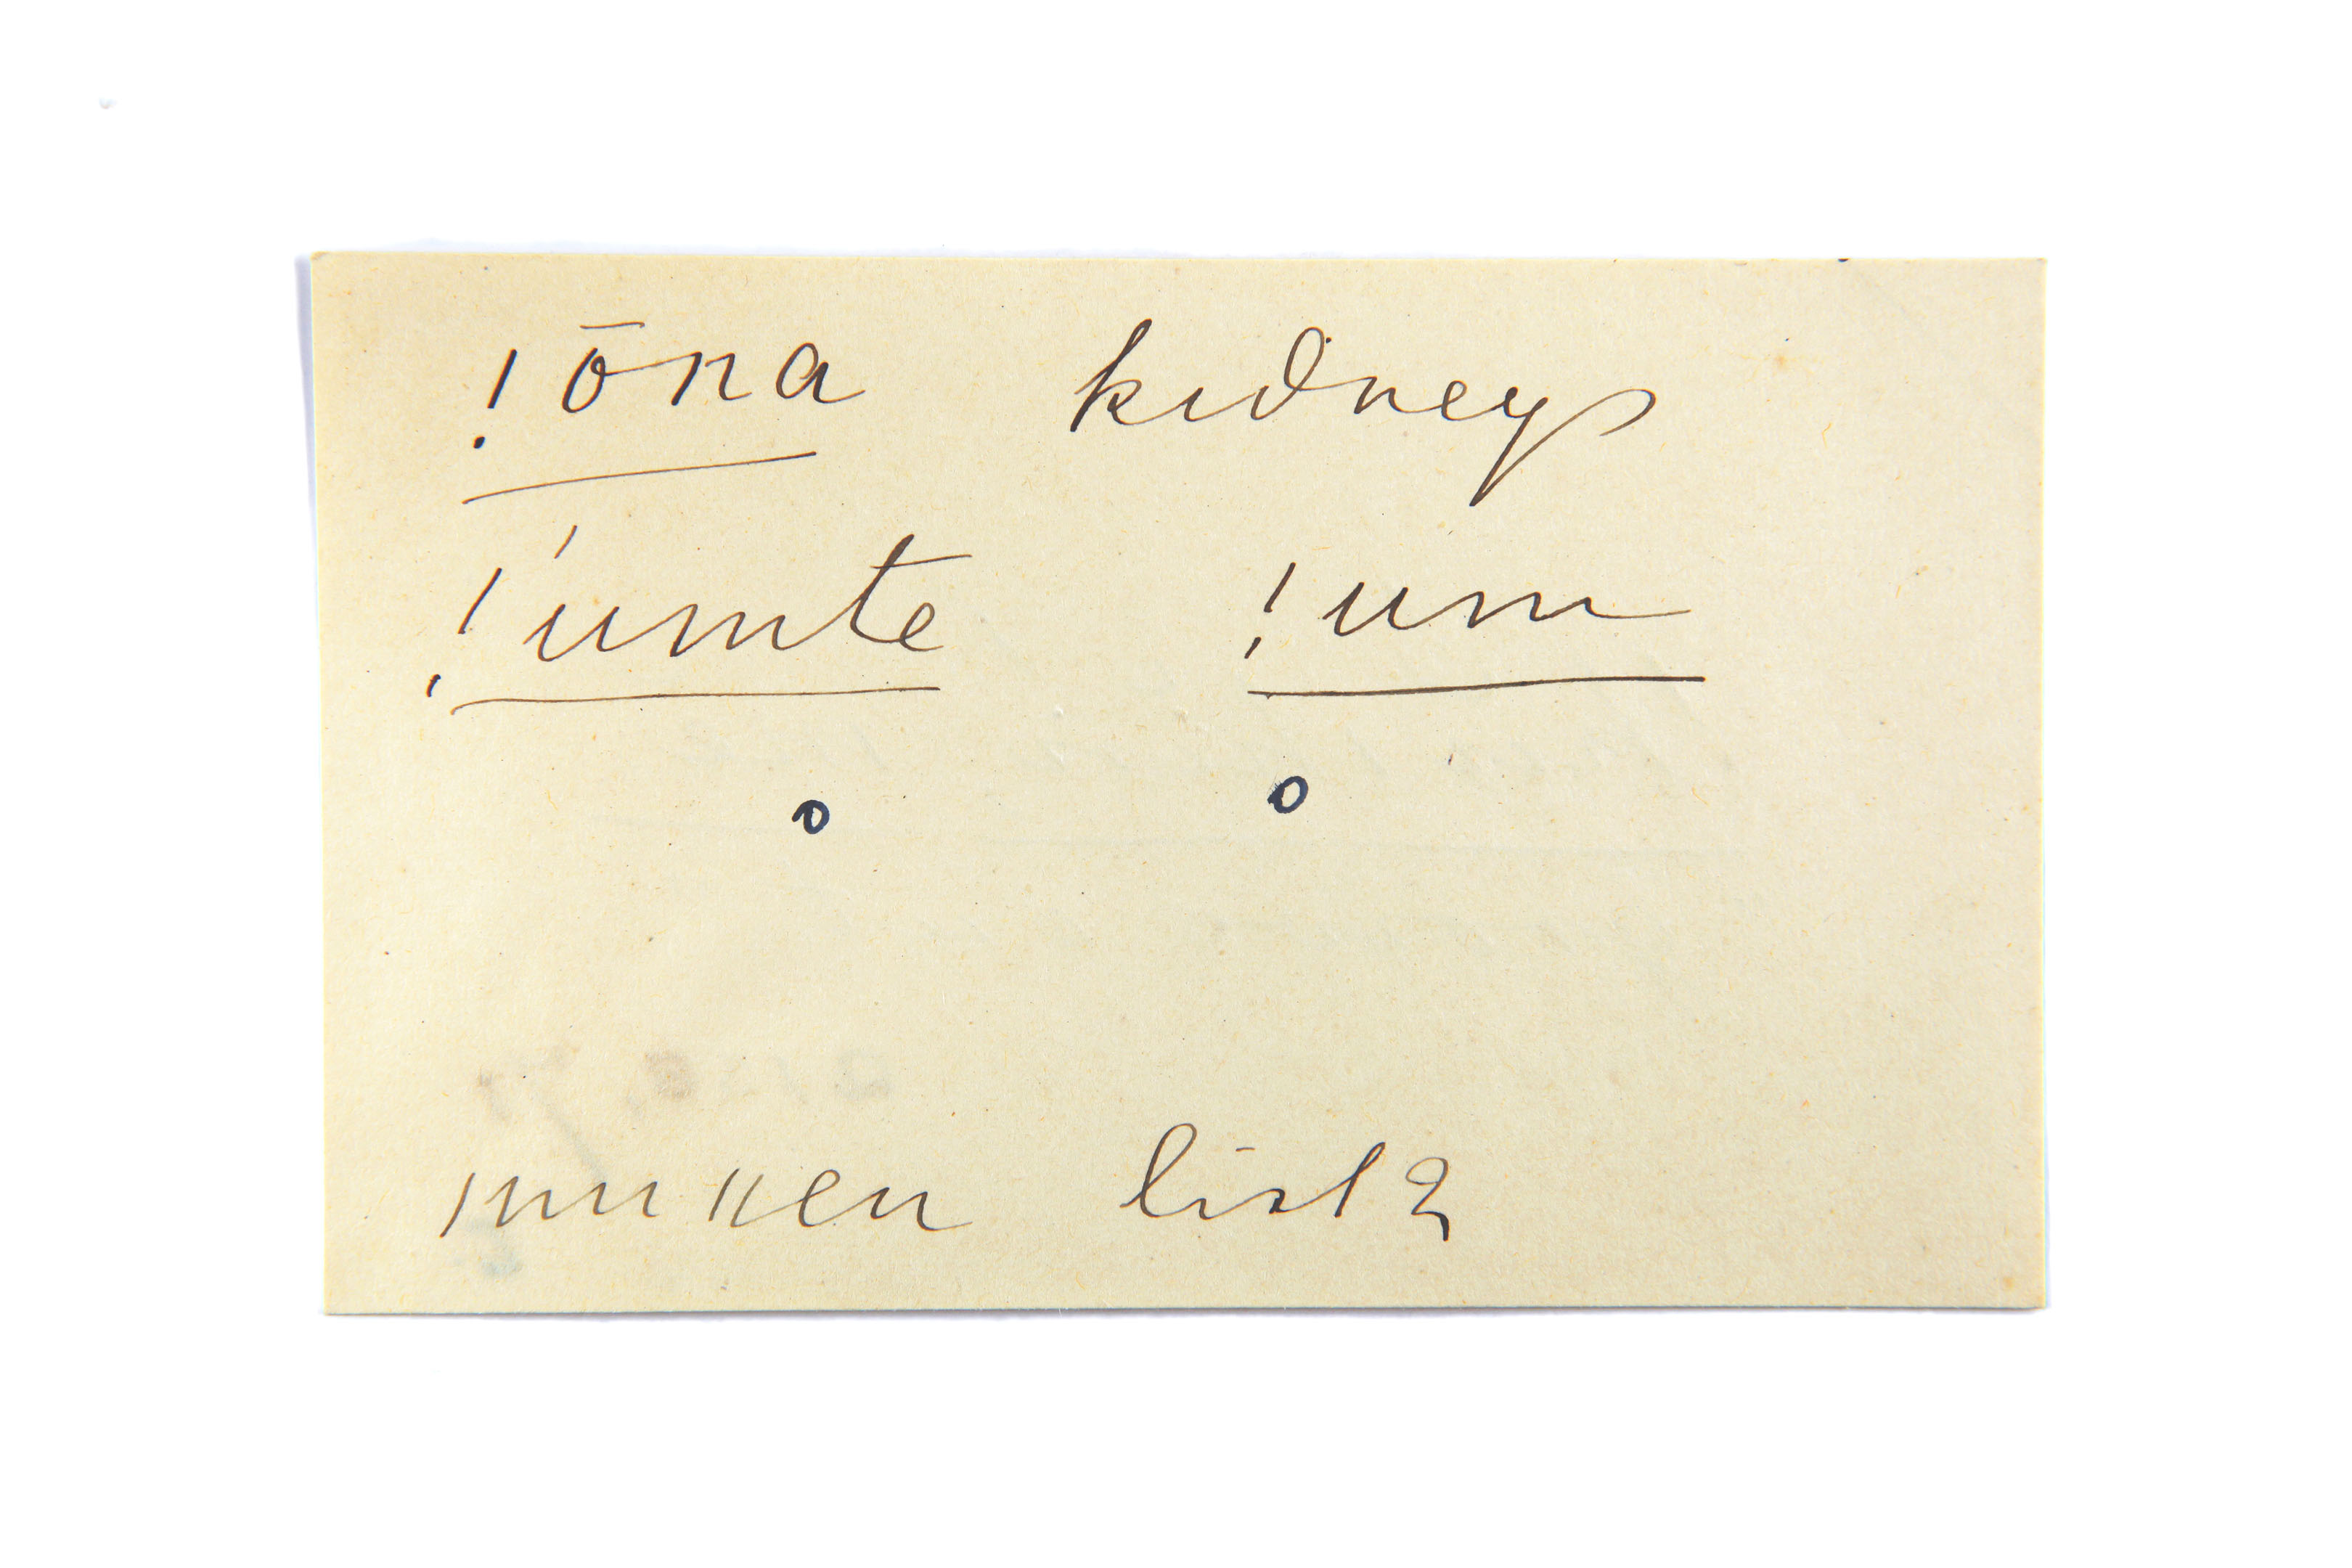 !ōna kidneys
!'umte !um
o o
|nu ||en list 2